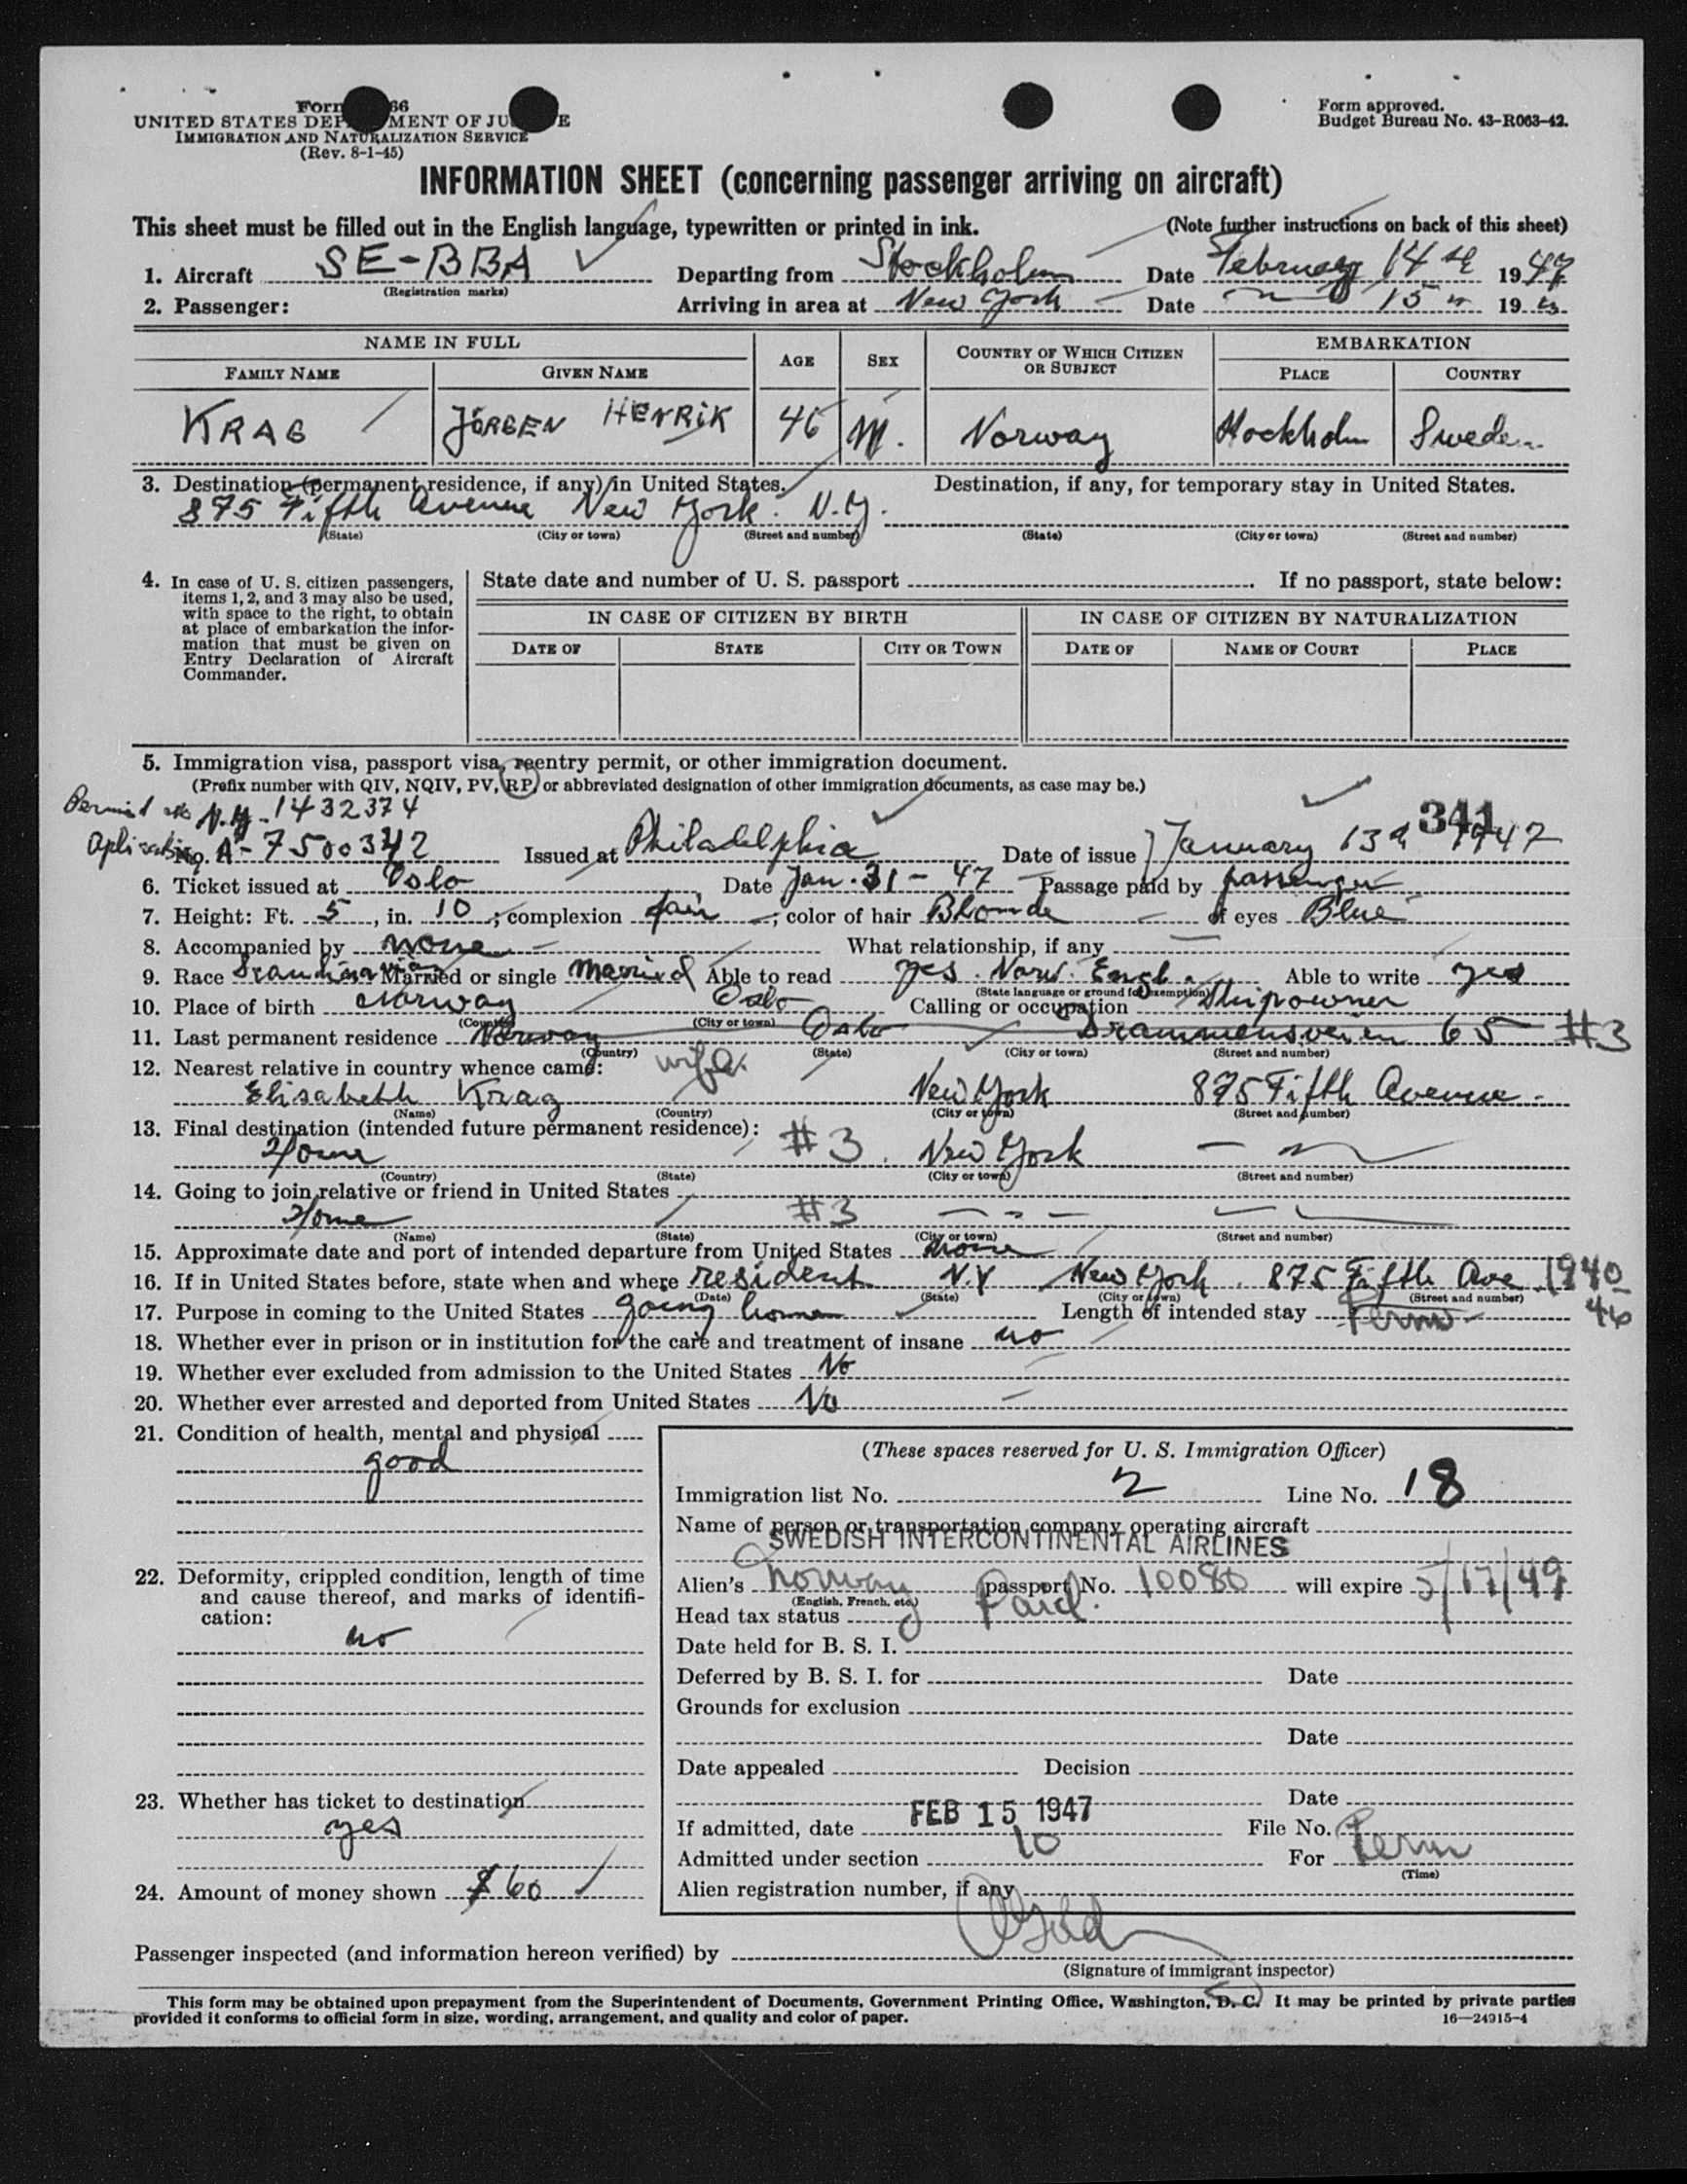 Form 66
UNITED STATES DEP MENT OF JU E
IMMIGRATION AND NATURALIZATION SERVICE
(Rev. 8-1-45)
Form approved.
Budget Bureau No. 43-R063-42.
INFORMATION SHEET (concerning passenger arriving on aircraft)
This sheet must be filled out in the English language, typewritten or printed in ink. (Note further instructions on back of this sheet)
1. Aircraft SE-BBA Departing from Stockholm Date February 14th 1947
(Registration marks)
2. Passenger: Arriving in area at New York Date 15 19
NAME IN FULL AGE SEX COUNTRY OF WHICH CITIZEN OR SUBJECT EMBARKATION
FAMILY NAME GIVEN NAME PLACE COUNTRY
KRAG JÖRGEN HENRIK 46 M. Norway Stockholm Sweden
3. Destination (permanent residence, if any) in United States. Destination, if any, for temporary stay in United States.
875 Fifth Avenue New York. N.Y.
(State) (City or town) (Street and number) (State) (City or town) (Street and number)
4. In case of U. S. citizen passengers, items 1, 2, and 3 may also be used, with space to the right, to obtain at place of embarkation the information that must be given on Entry Declaration of Aircraft Commander.
State date and number of U. S. passport If no passport, state below:
IN CASE OF CITIZEN BY BIRTH IN CASE OF CITIZEN BY NATURALIZATION
DATE OF STATE CITY OR TOWN DATE OF NAME OF COURT PLACE
5. Immigration visa, passport visa, reentry permit, or other immigration document.
(Prefix number with QIV, NQIV, PV, RP, or abbreviated designation of other immigration documents, as case may be.)
Permit N.Y. 1432374
341
No. A-7500342 Issued at Philadelphia Date of issue January 13th 1947
6. Ticket issued at Oslo Date Jan. 31-47 Passage paid by passenger
7. Height: Ft. 5, in. 10; complexion fair; color of hair Blonde of eyes Blue
8. Accompanied by none What relationship, if any
9. Race Scandinavian Married or single married Able to read yes. Norw. Engl. Able to write yes
(State language or ground for exemption)
10. Place of birth Norway Oslo Calling or occupation Shipowner
(Country) (City or town)
11. Last permanent residence Norway Oslo Drammensveien 65 #3
(Country) (State) (City or town) (Street and number)
12. Nearest relative in country whence came: wife.
Elisabeth Krag New York 875 Fifth Avenue
(Name) (Country) (City or town) (Street and number)
13. Final destination (intended future permanent residence): #3
Home New York
(Country) (State) (City or town) (Street and number)
14. Going to join relative or friend in United States
Home #3
(Name) (State) (City or town) (Street and number)
15. Approximate date and port of intended departure from United States none
16. If in United States before, state when and where resident N.Y New York. 875 Fifth Ave 1940
(Date) (State) (City or town) (Street and number)
46
17. Purpose in coming to the United States going home Length of intended stay Perm
18. Whether ever in prison or in institution for the care and treatment of insane no
19. Whether ever excluded from admission to the United States No
20. Whether ever arrested and deported from United States No
21. Condition of health, mental and physical
good
22. Deformity, crippled condition, length of time and cause thereof, and marks of identification:
no
23. Whether has ticket to destination
yes
24. Amount of money shown $60
(These spaces reserved for U. S. Immigration Officer)
Immigration list No. 2 Line No. 18
Name of person or transportation company operating aircraft
SWEDISH INTERCONTINENTAL AIRLINES
Alien's Norway passport No. 10080 will expire 5/17/49
(English, French, etc.)
Head tax status Paid.
Date held for B. S. I.
Deferred by B. S. I. for Date
Grounds for exclusion
Date
Date appealed Decision
Date
If admitted, date FEB 15 1947 File No.
Admitted under section 10 For Perm
(Time)
Alien registration number, if any
Passenger inspected (and information hereon verified) by
(Signature of immigrant inspector)
This form may be obtained upon prepayment from the Superintendent of Documents, Government Printing Office, Washington, D. C. It may be printed by private parties
provided it conforms to official form in size, wording, arrangement, and quality and color of paper. 16—24915-4